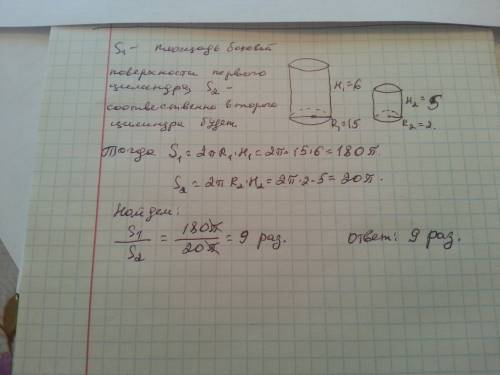 S₁ – площадь боковой
поверхности первого
цилиндра, S₂ –
соответственно второго
цилиндра будет.
H₁=6
R₁=15
H₂=5
R₂=2.
Тогда S₁ = 2πR₁·H₁ = 2π·15·6 = 180π.
S₂ = 2πR₂·H₂ = 2π·2·5 = 20π.
Найдем:
S₁/S₂ = 180π/20π = 9 раз. Ответ: 9 раз.